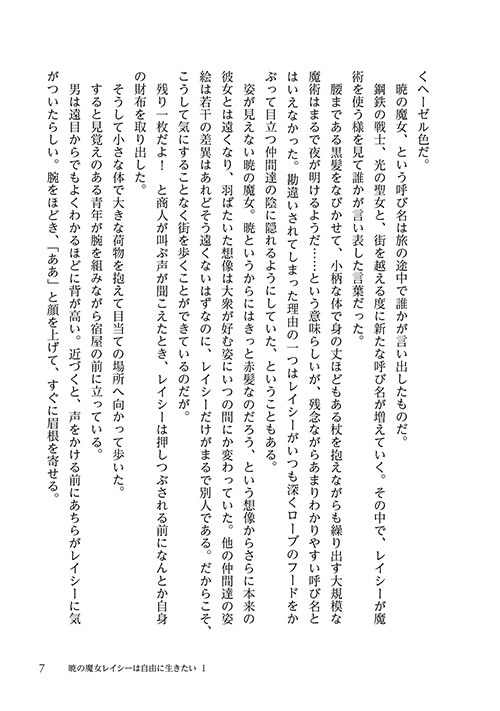 くヘーゼル色だ。
　暁の魔女、という呼び名は旅の途中で誰かが言い出したものだ。
　鋼鉄の戦士、光の聖女と、街を越える度に新たな呼び名が増えていく。その中で、レイシーが魔
術を使う様を見て誰かが言い表した言葉だった。
　腰まである黒髪をなびかせて、小柄な体で身の丈ほどもある杖を抱えながらも繰り出す大規模な
魔術はまるで夜が明けるようだ……という意味らしいが、残念ながらあまりわかりやすい呼び名と
はいえなかった。勘違いされてしまった理由の一つはレイシーがいつも深くローブのフードをか
ぶって目立つ仲間達の陰に隠れるようにしていた、ということもある。
　姿が見えない暁の魔女。暁というからにはきっと赤髪なのだろう、という想像からさらに本来の
彼女とは遠くなり、羽ばたいた想像は大衆が好む姿にいつの間にか変わっていた。他の仲間達の姿
絵は若干の差異はあれどそう遠くないはずなのに、レイシーだけがまるで別人である。だからこそ、
こうして気にすることなく街を歩くことができているのだが。
　残り一枚だよ！　と商人が叫ぶ声が聞こえたとき、レイシーは押しつぶされる前になんとか自身
の財布を取り出した。
　そうして小さな体で大きな荷物を抱えて目当ての場所へ向かって歩いた。
　すると見覚えのある青年が腕を組みながら宿屋の前に立っている。
　男は遠目からでもよくわかるほどに背が高い。近づくと、声をかける前にあちらがレイシーに気
がついたらしい。腕をほどき、「ああ」と顔を上げて、すぐに眉根を寄せる。
7　暁の魔女レイシーは自由に生きたい 1